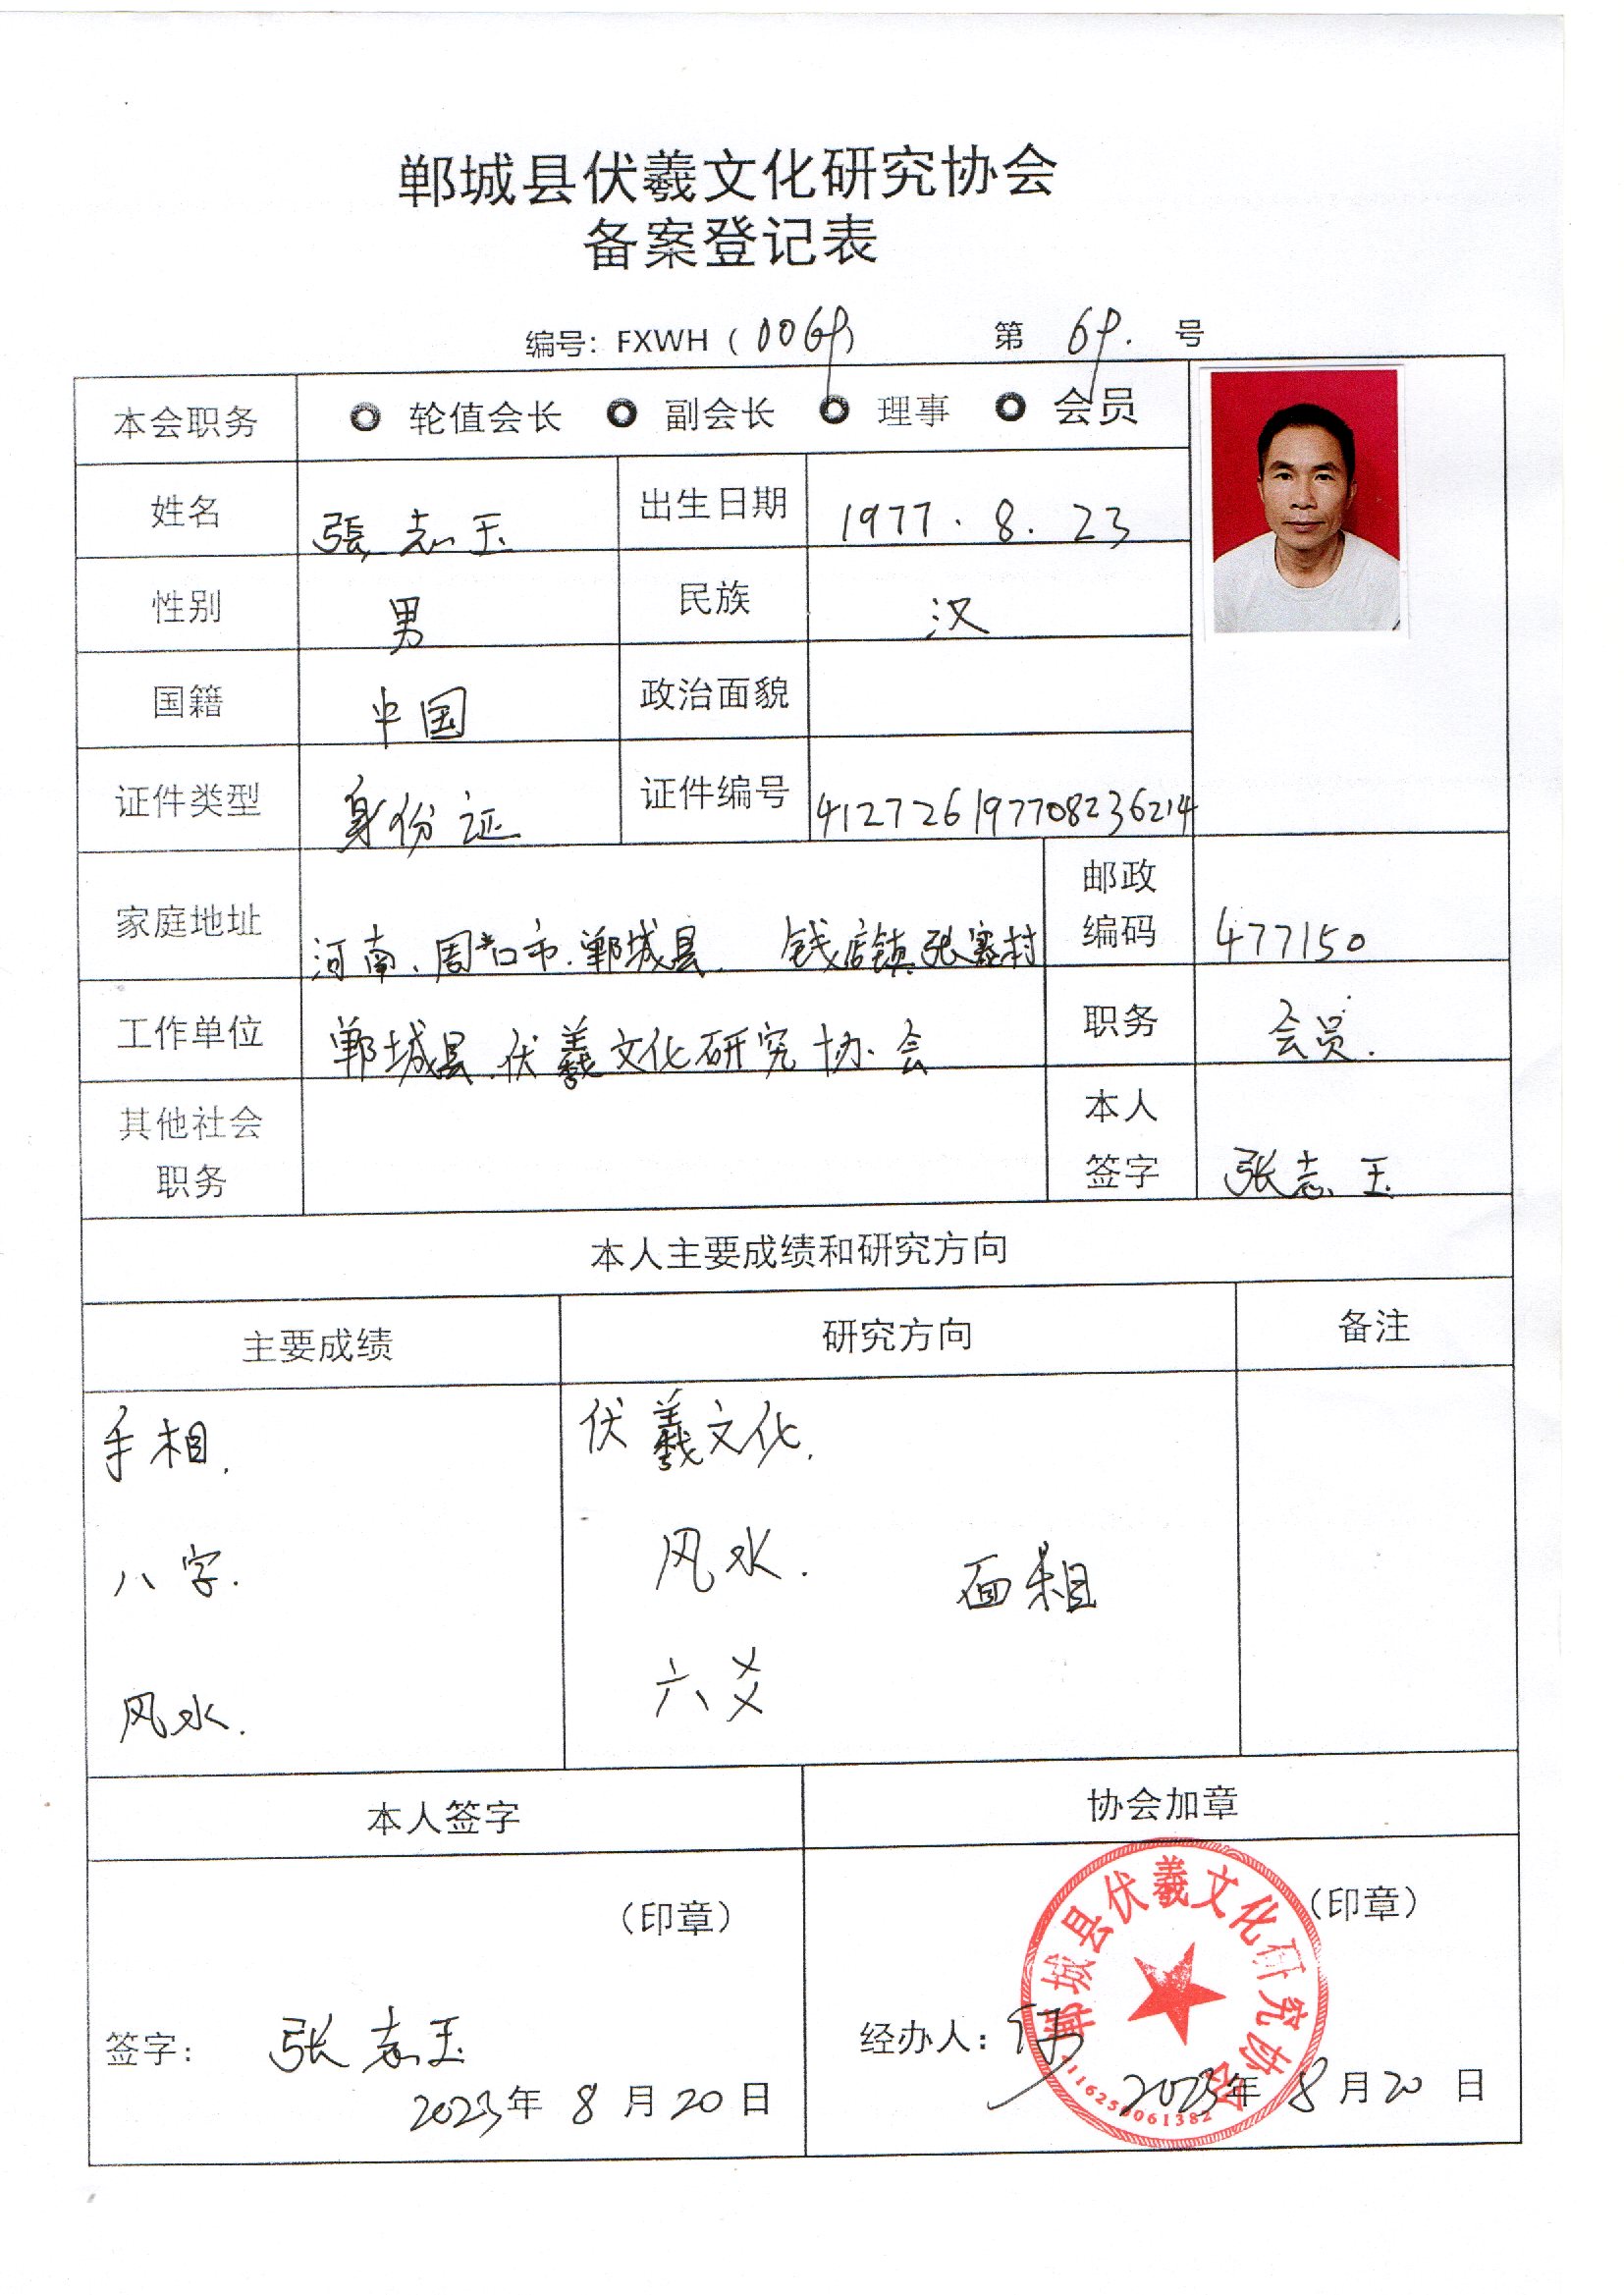 郸城县伏羲文化研究协会
备案登记表
编号：FXWH（0069） 第 69. 号
本会职务 轮值会长 副会长 理事 会员
姓名 張志玉 出生日期 1977.8.23
性别 男 民族 汉
国籍 中国 政治面貌
证件类型 身份证 证件编号 412726197708236214
家庭地址 河南.周口市.郸城县. 钱店镇.张寨村 邮政编码 477150
工作单位 郸城县.伏羲文化研究协会 职务 会员.
其他社会职务 本人签字 张志玉
本人主要成绩和研究方向
主要成绩 研究方向 备注
手相. 伏羲文化.
八字. 风水. 面相
风水. 六爻
本人签字 协会加章
（印章） （印章）
郸城县伏羲文化研究协会
签字： 张志玉 经办人：
2023年 8月20日 2023年 8月20日